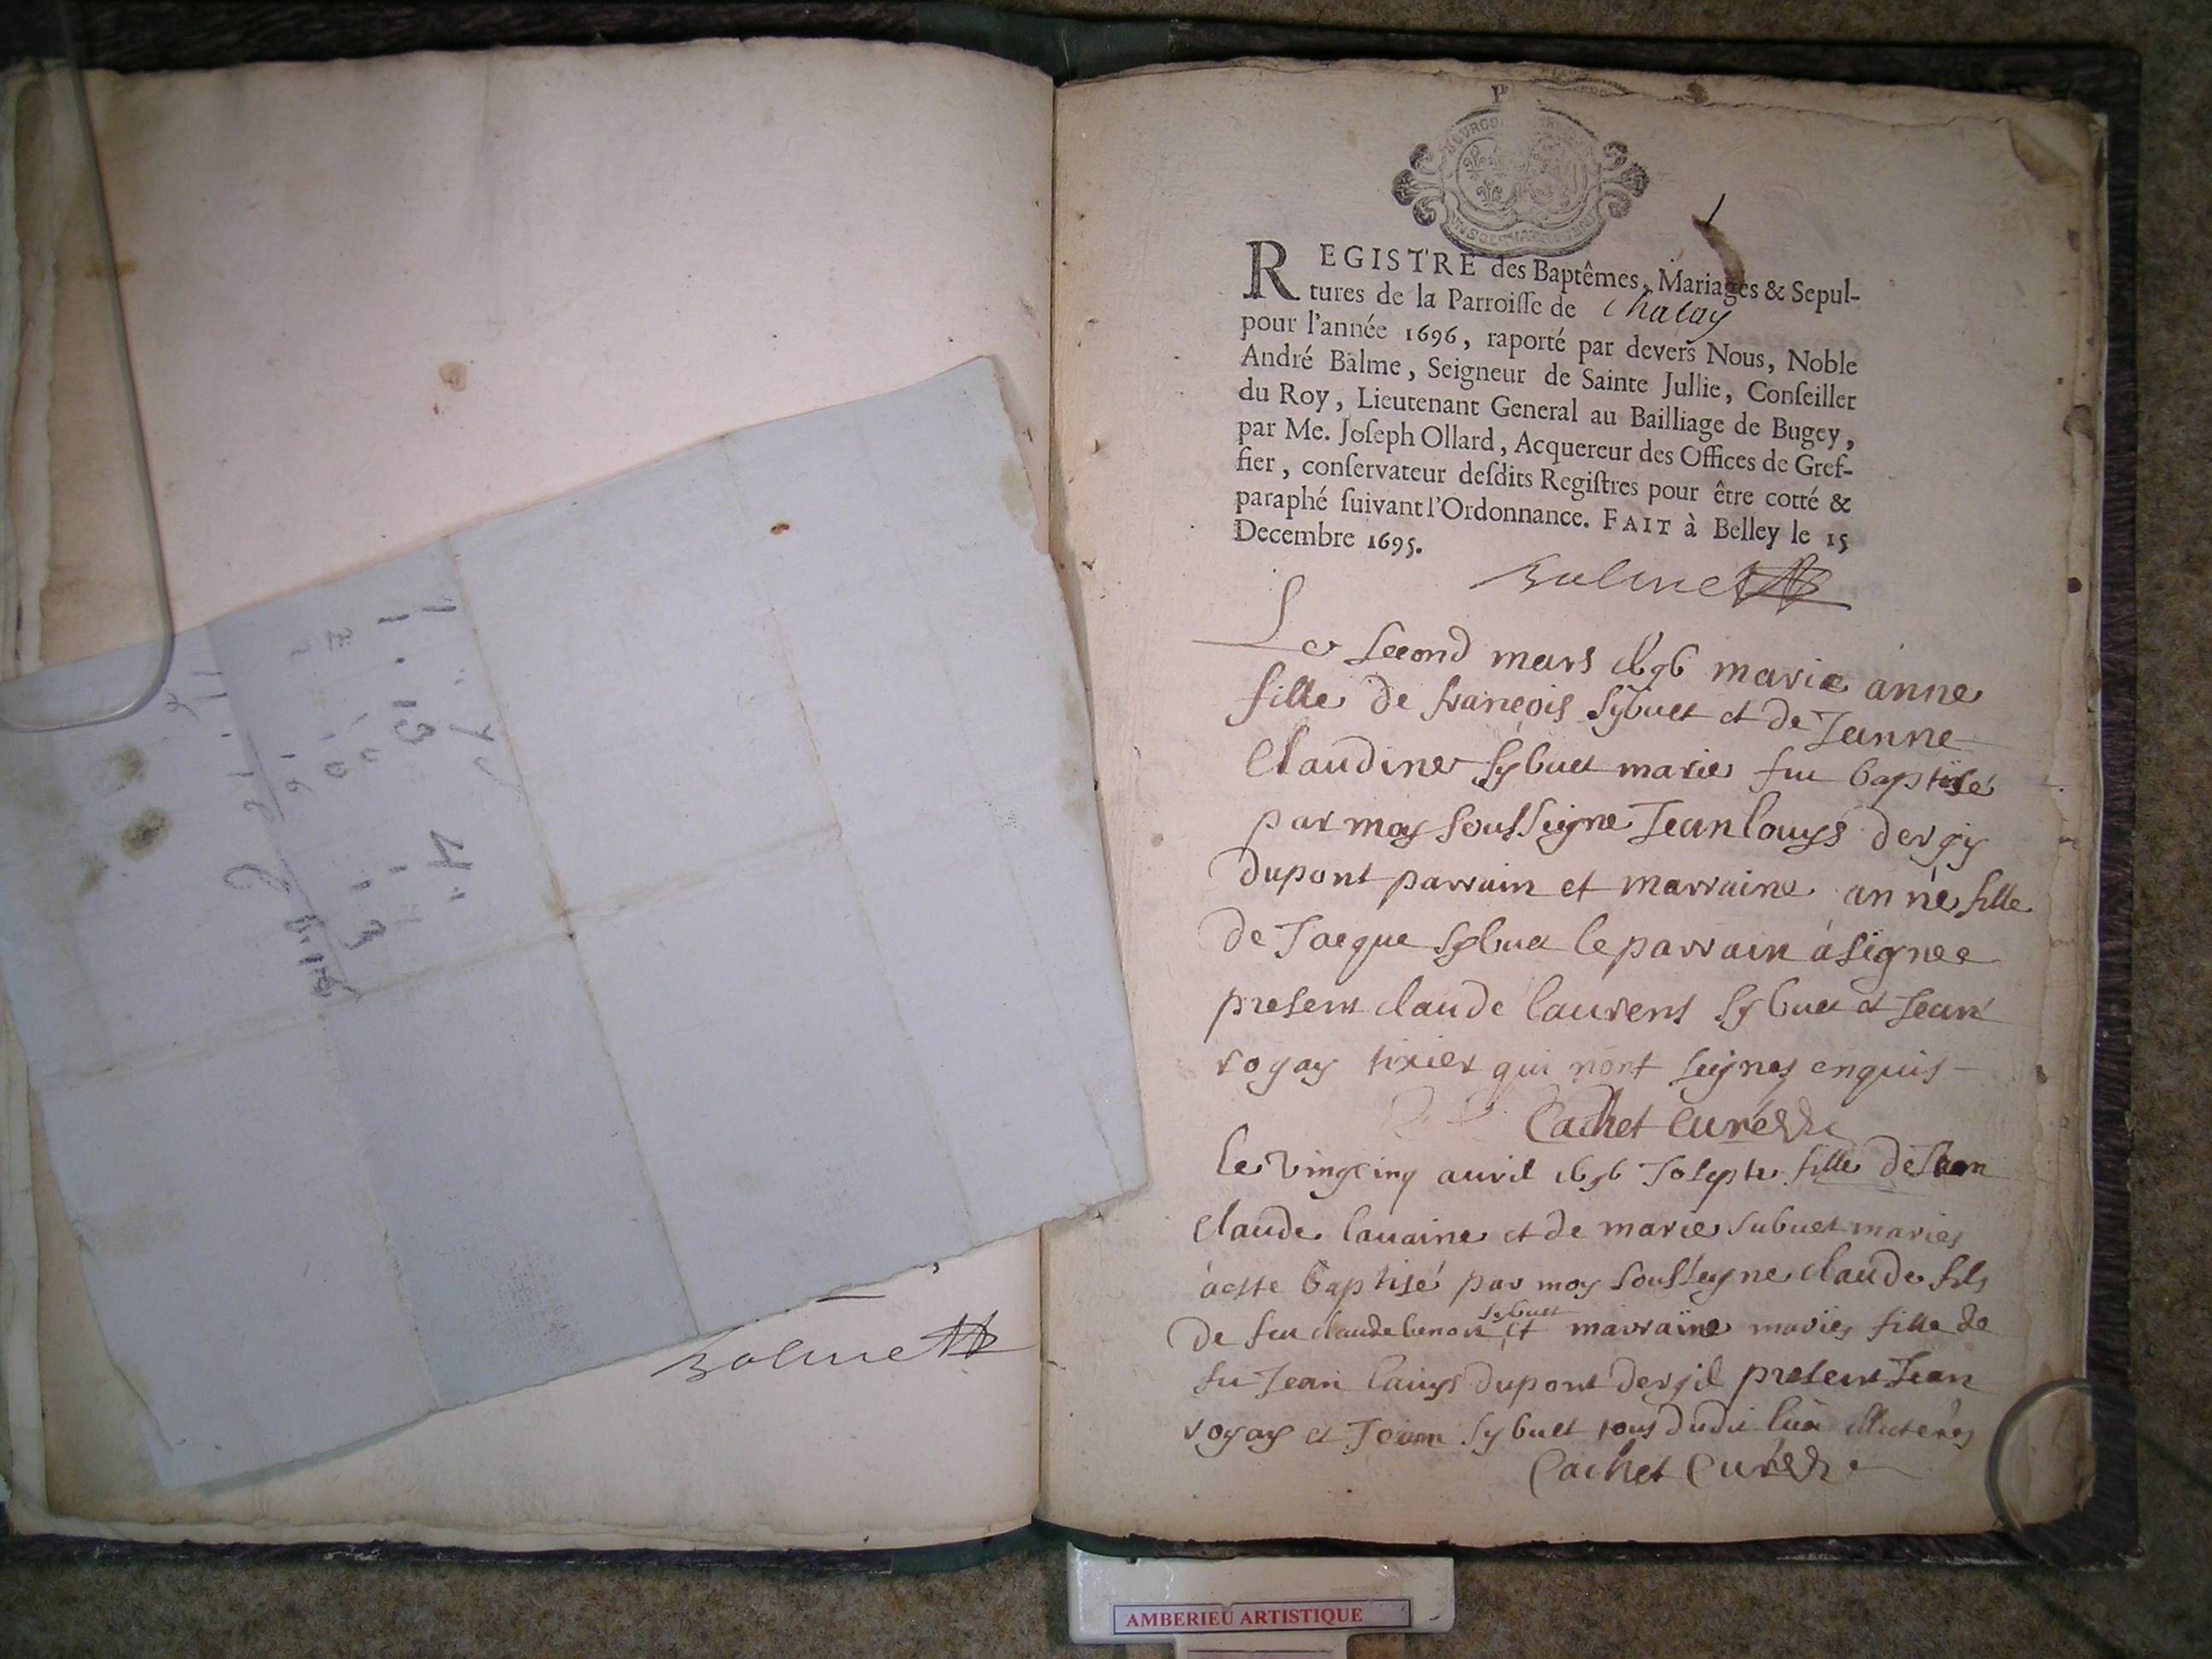 Balme
REGISTRE des Baptêmes, Mariages & Sepul-
tures de la Parroisse de Chaley
pour l'année 1696, raporté par devers Nous, Noble
André Balme, Seigneur de Sainte Jullie, Conseiller
du Roy, Lieutenant General au Bailliage de Bugey,
par Me. Joseph Ollard, Acquereur des Offices de Gref-
fier, conservateur desdits Registres pour être cotté &
paraphé suivant l'Ordonnance. FAIT à Belley le 15
Decembre 1695.
Balme
Le second mars 1696 marie anne
fille de francois sybuet et de Jeanne
Claudine sybuet maries fut baptisé
par moy soussigne Jean louys dergy
dupont parrain et marraine anne fille
de Jacque sybuet le parrain a signee
present claude laurent sybuet et Jean
rogay tixier qui nont signes enquis
Cachet Curé
le vingcinq auvril 1696 Josephe fille de Jean
claude lauaine et de marie subuet maries
a este baptisé par moy soussigne claude fils
de feu claude benoit sybuet et marraine maries fille de
fu Jean louys dupont dergil present Jean
rogay et Jean sybuet tous dudit illiteres
Cachet Curé
AMBERIEU ARTISTIQUE